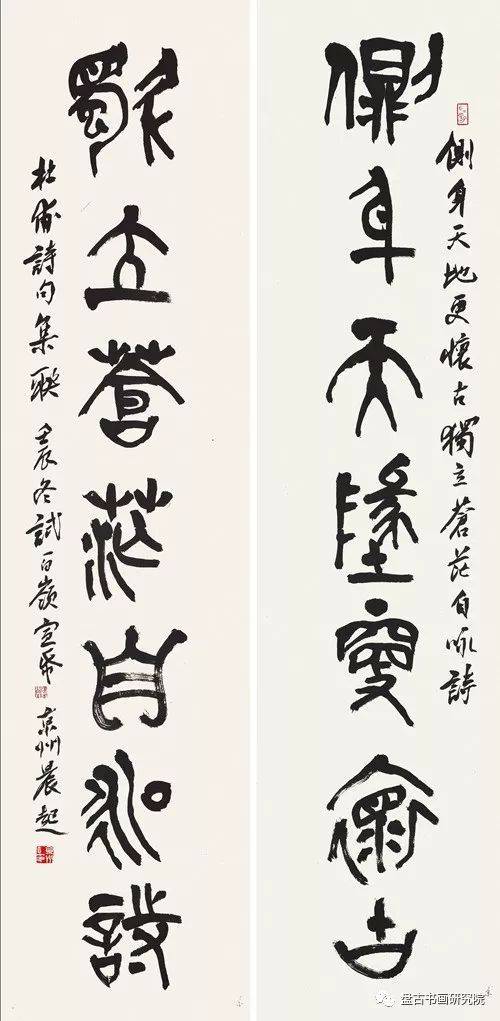 側身天地更懷古獨立蒼茫自咏詩
側身天地更懷古
獨立蒼茫自詠詩
杜甫詩句集聯 壬辰冬試百嶺宣帋 京州晨起
盘古书画研究院